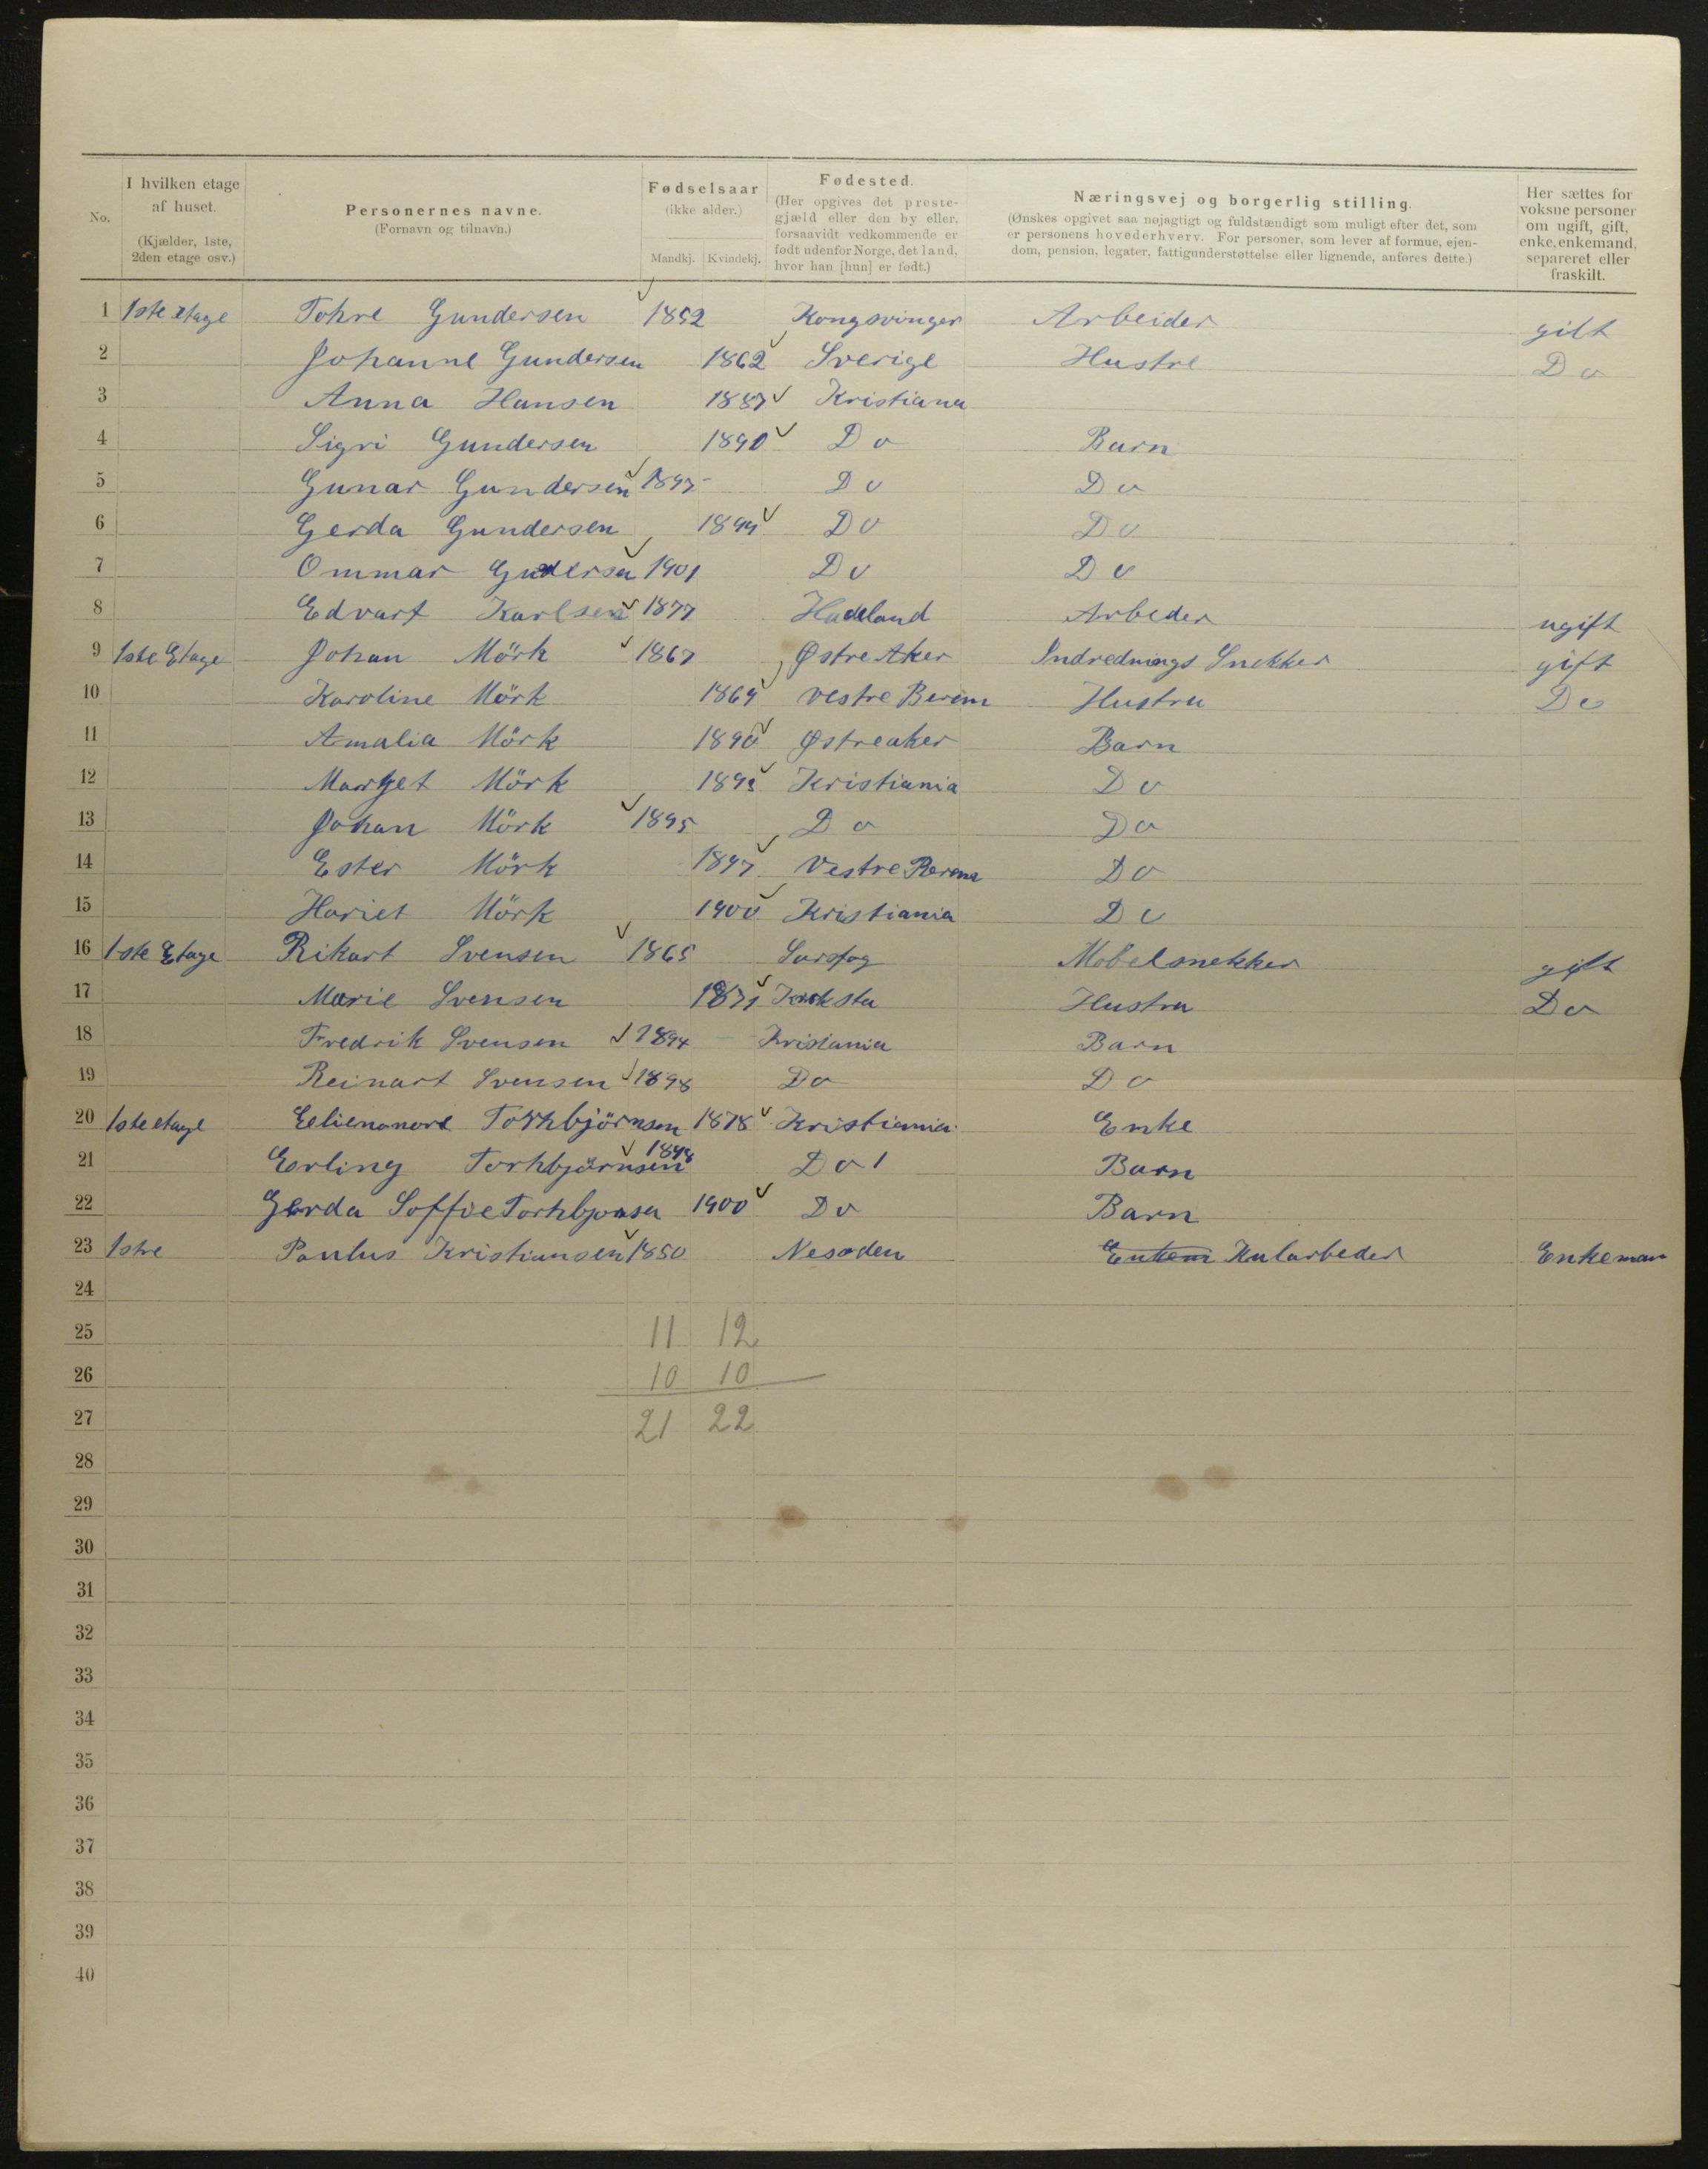 No.
I hvilken etage af huset. (Kjælder, 1ste, 2den etage osv.)
Personernes navne. (Fornavn og tilnavn.)
Fødselsaar (ikke alder.) Mandkj. Kvindekj.
Fødested. (Her opgives det præstegjæld eller den by eller, forsaavidt vedkommende er født udenfor Norge, det land, hvor han [hun] er født.)
Næringsvej og borgerlig stilling. (Ønskes opgivet saa nøjagtigt og fuldstændigt som muligt efter det, som er personens hovederhverv. For personer, som lever af formue, ejendom, pension, legater, fattigunderstøttelse eller lignende, anføres dette.)
Her sættes for voksne personer om ugift, gift, enke, enkemand, separeret eller fraskilt.
1 1ste etage Tohre Gundersen 1852 Kongsvinger Arbeider gift
2 Johanne Gundersen 1862 Sverige Hustre Do
3 Anna Hansen 1887 Kristiana
4 Sigri Gundersen 1890 Do Barn
5 Gunar Gundersen 1897 Do Do
6 Gerda Gundersen 1899 Do Do
7 Ommar Gundersen 1901 Do Do
8 Edvart Karlsen 1877 Hadeland Arbeder ugift
9 1ste Etage Johan Mörk 1867 Østre Aker Indrednings Snekker gift
10 Karoline Mörk 1869 vestre Berem Hustru Do
11 Amalia Mörk 1890 Østreaker Barn
12 Marget Mörk 1893 Kristiania Do
13 Johan Mörk 1895 Do Do
14 Ester Mörk 1897 Vestre Berem Do
15 Hariet Mörk 1900 Kristiania Do
16 1ste Etage Rikart Svensen 1865 Sarsfog Mobelsnekker gift
17 Marie Svensen 1871 Hustru Do
18 Fredrik Svensen 1894 Kristania Barn
19 Reinart Svensen 1898 Do Do
20 1ste etage Eelienanore Torhbjörnsen 1878 Kristiania Enke
21 Erling Torhbjörnsen 1898 Do Barn
22 Gerda Soffie Torhbjonsen 1900 Do Barn
23 1stre Paulus Kristiansen 1850 Nesoden Enkem Kularbeder Enkeman
24
25 11 12
26 10 10
27 21 22
28
29
30
31
32
33
34
35
36
37
38
39
40